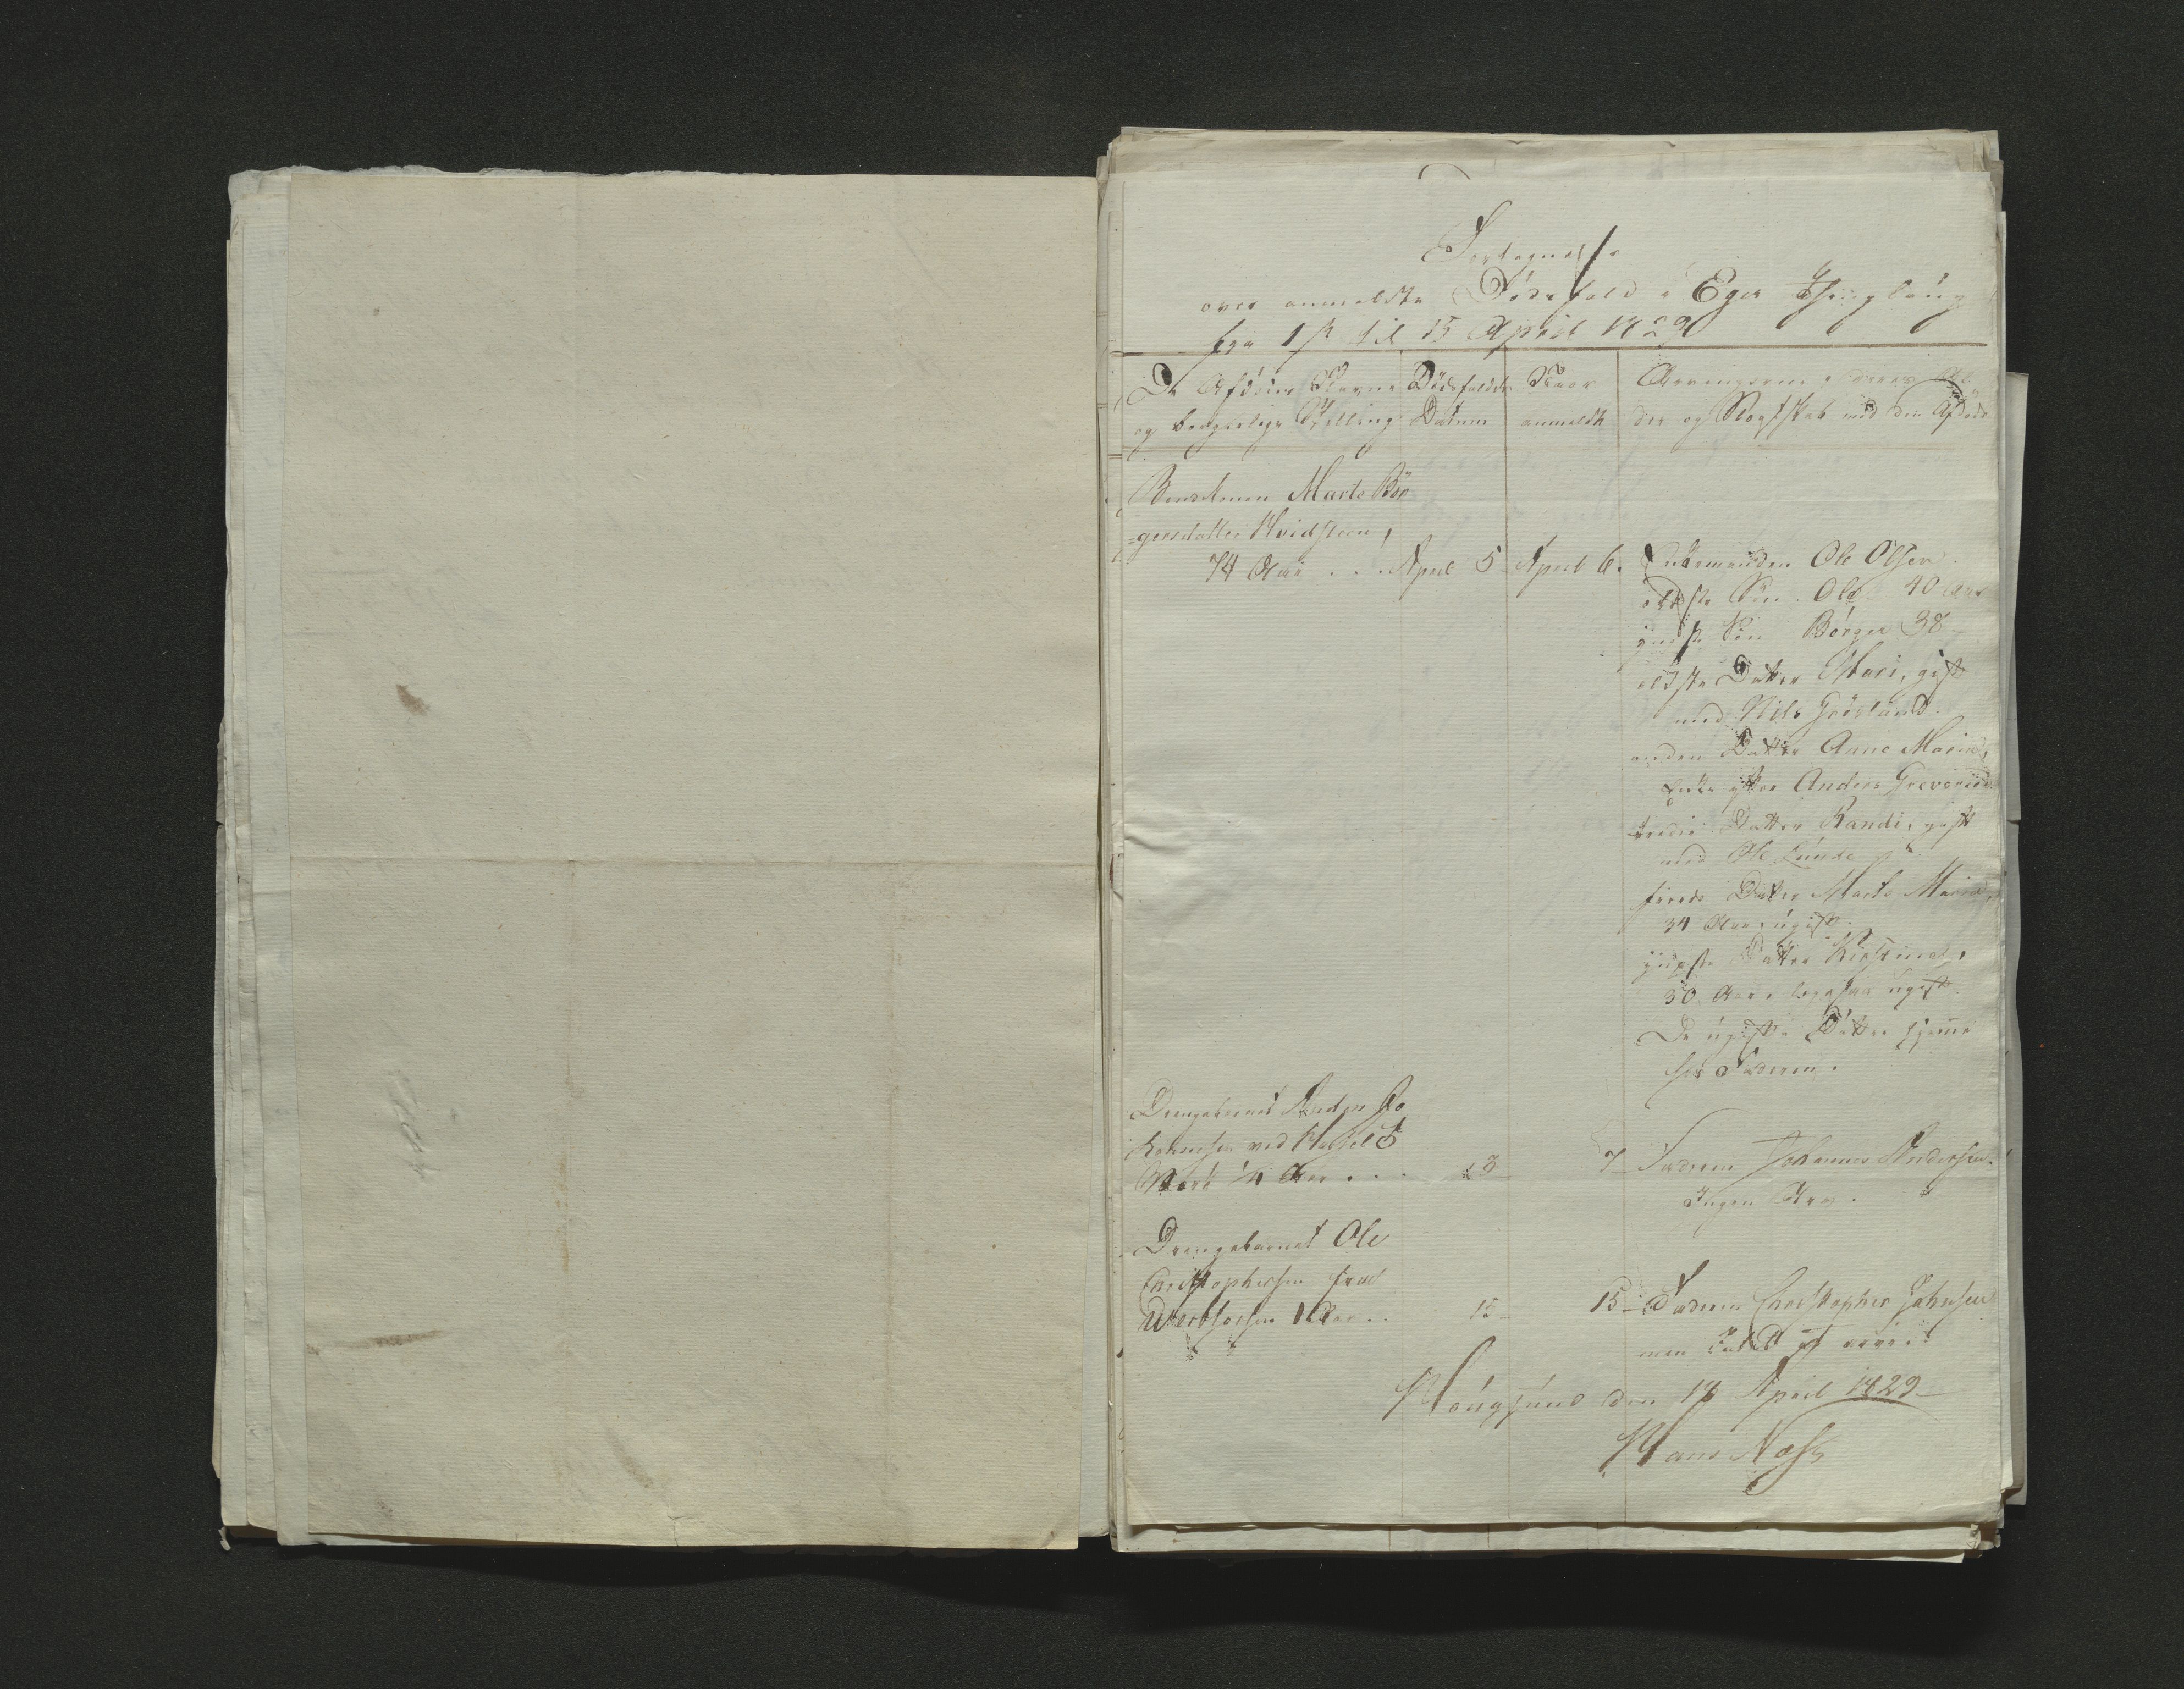 Fortegnelse
over anmeldte Dødsfald i Eger Thinglaug
fra 1ste til 15 April 1829
De Afdødes Navne
og borgerlige Stilling
Dødsfaldets
Datum
Naar
anmeldt
Arvingerne, deres Al
der og Slægtskab med den Afdøde
Bondekonen Marte Bør
=gersdatter Hvidsteen,
74 Aar . . . April 5 April 6. Enkemanden Ole Olsen.
ældste Søn Ole 40 Aar
yngste Søn Börger 38 –
ældste Datter Mari, gift
med Nils Grøsland.
anden Datter Anne Maria,
Enke efter Anders
tredie Datter Randi, gift
med Ole Lunde
fierde Datter Marte Maria,
34 Aar, ugift.
yngste Datter Kirstine,
30 Aar, ligesaa ugift.
De ugifte Døttre hjemme
hos Faderen.
Drengebarnet Anders Jo
hannesen ved
1/4 Aar . . . 3 – 7 – Faderen Johannes Andersen.
Ingen Arv.
Drengebarnet Ole
Christophersen fra
1 Aar . . 15 – 15 – Faderen Christopher Johnsen
men Intet at arve.
Hougsund den 18 April 1829 –
Hans Næss